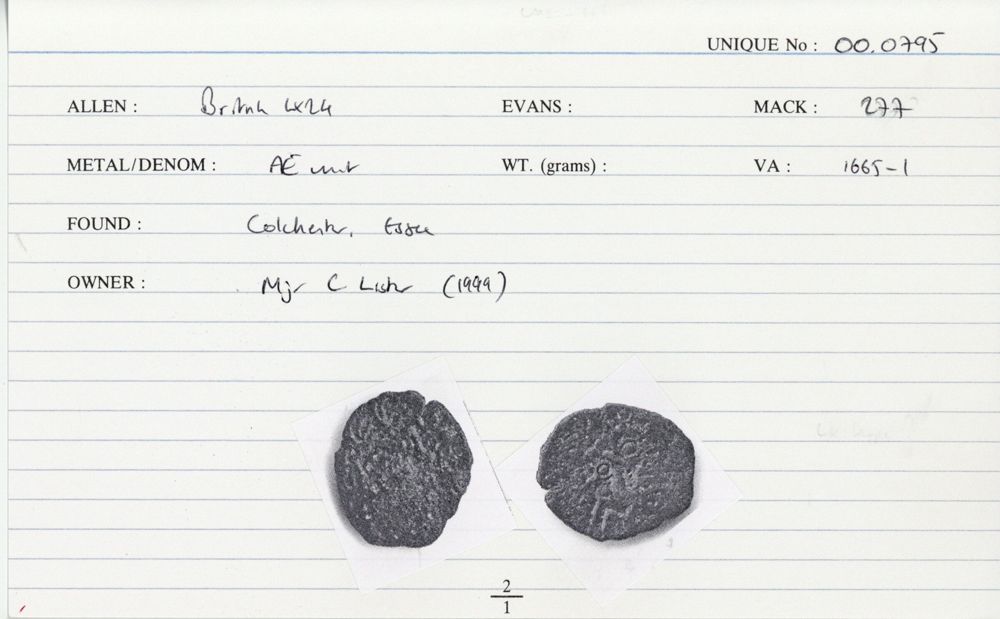 UNIQUE No : 00.0795
ALLEN : British LX24 EVANS : MACK : 277
METAL/DENOM : AE unit WT. (grams) : VA : 1665-1
FOUND : Colchester, Essex
OWNER : Mjr C Lister (1999)
2
1